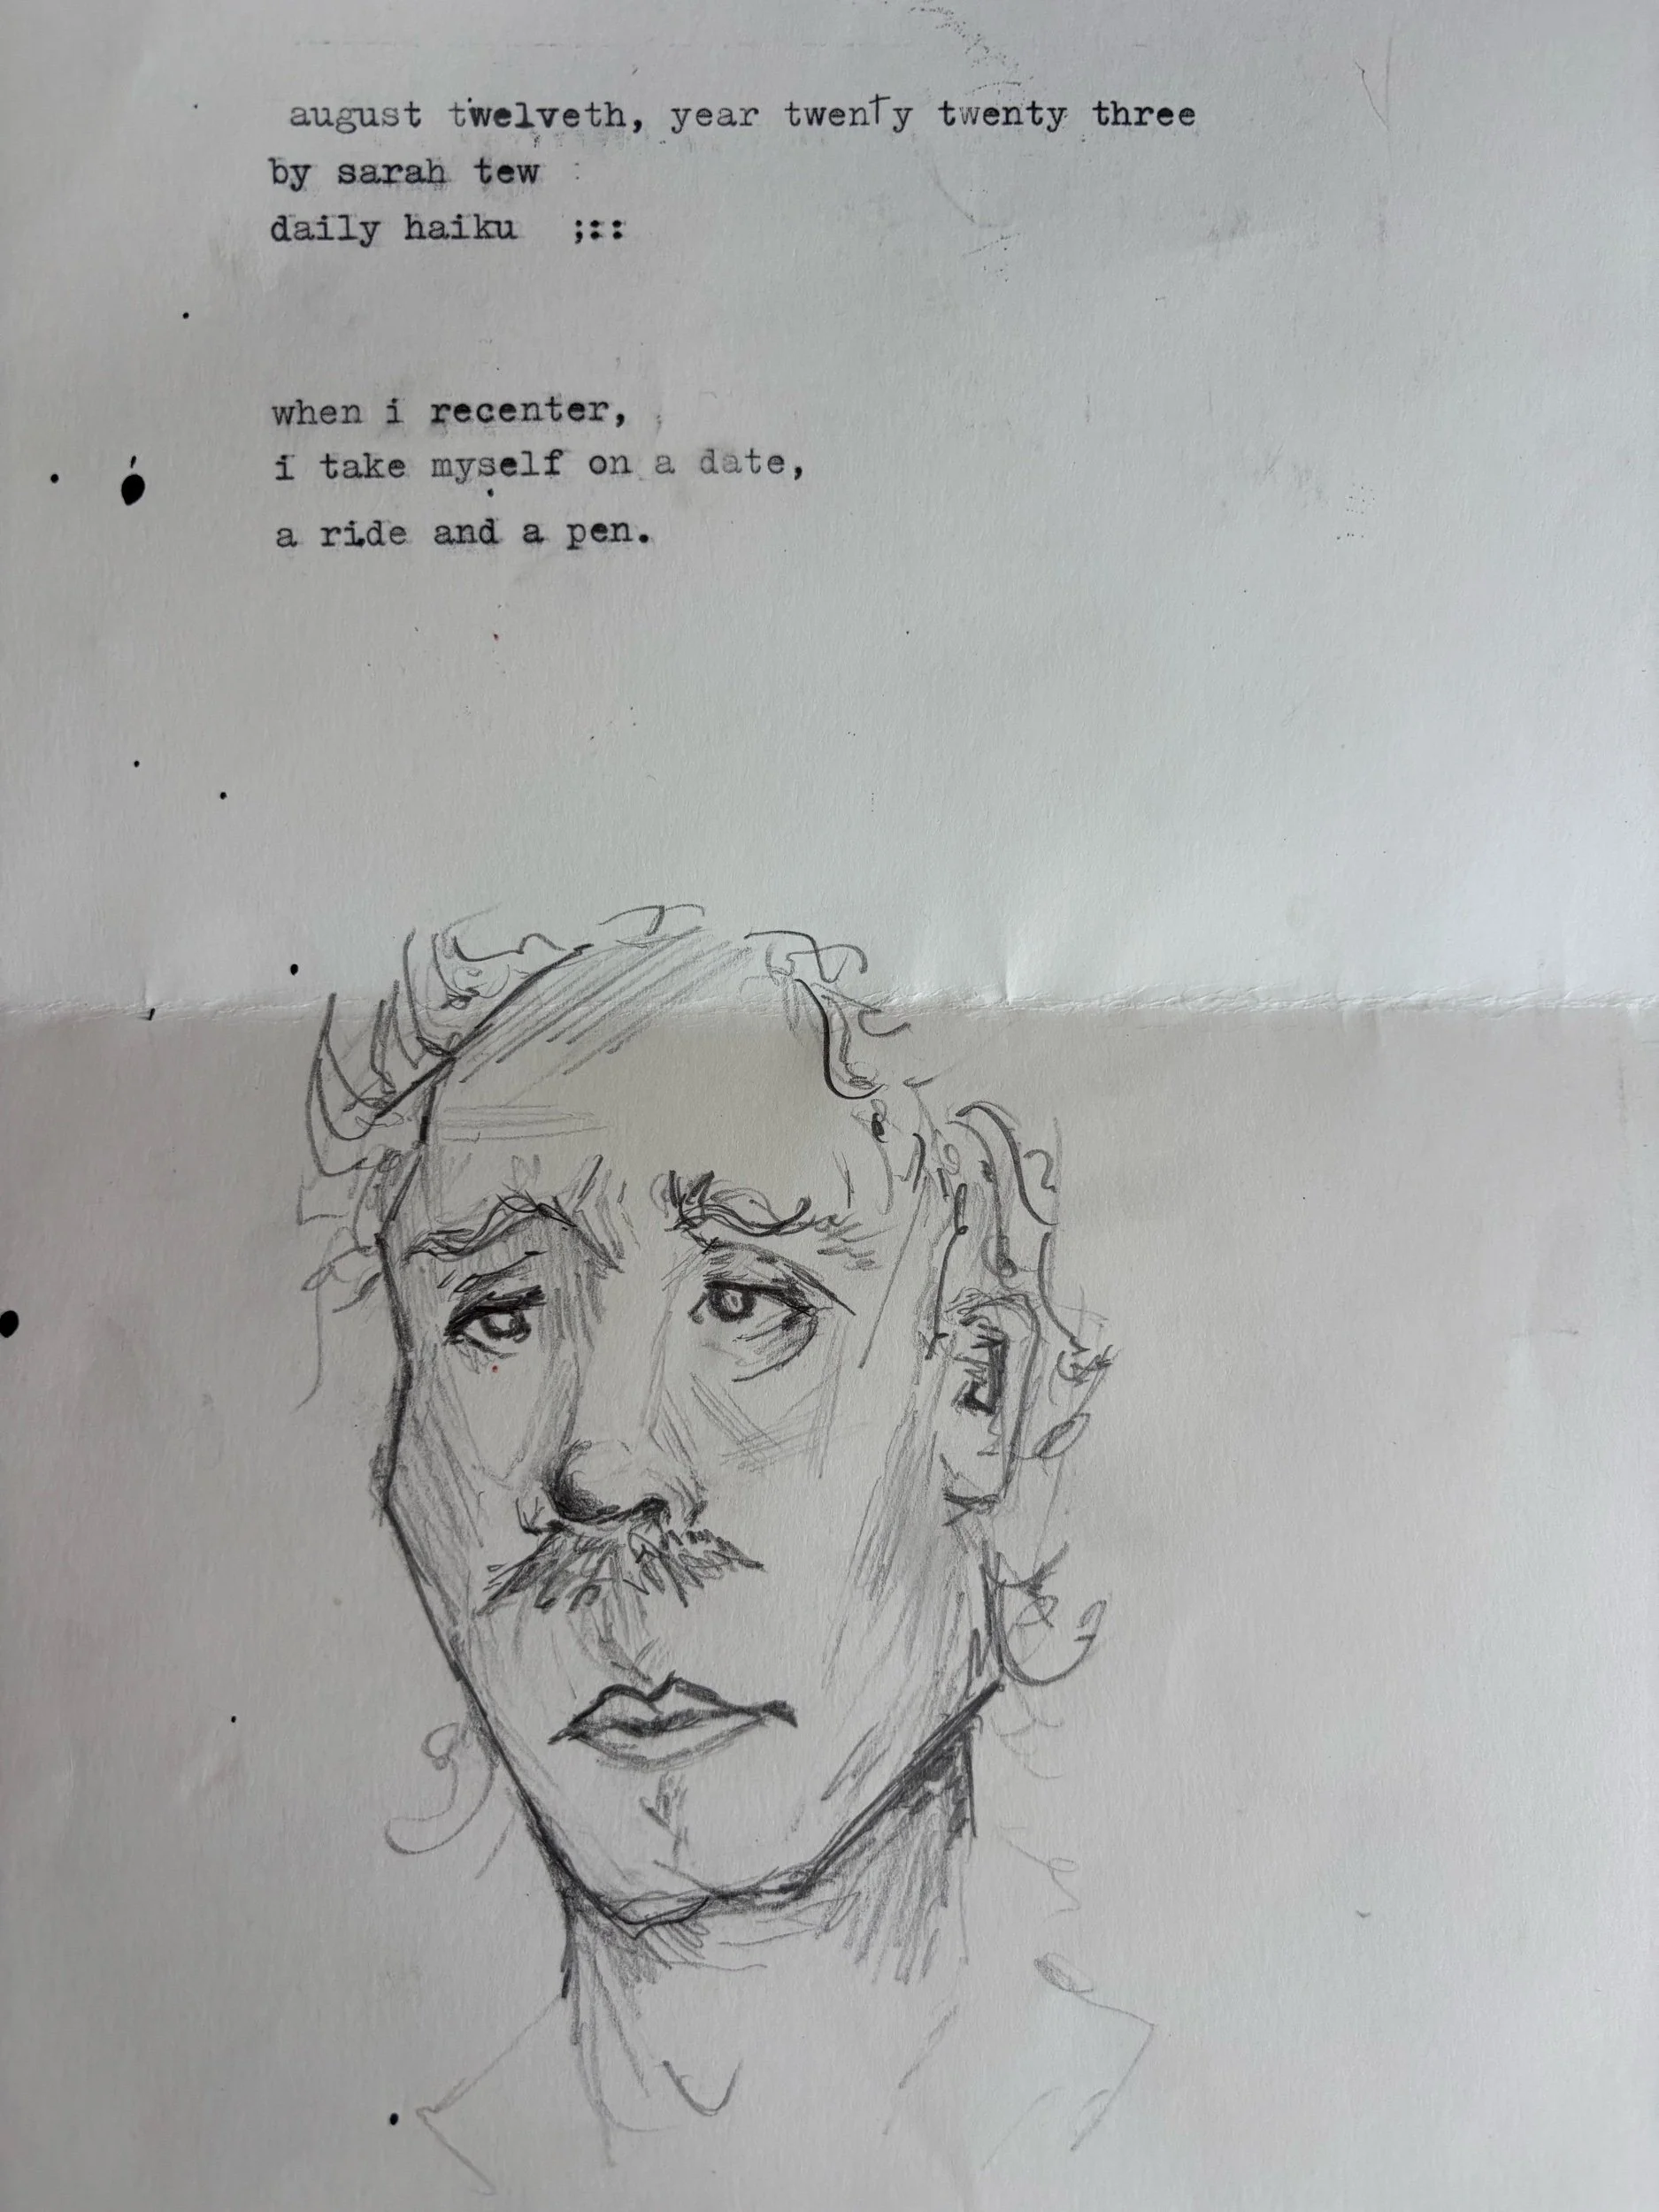 august twelveth, year twenty twenty three
by sarah tew :
daily haiku ;:::
when i recenter,
i take myself on a date,
a ride and a pen.